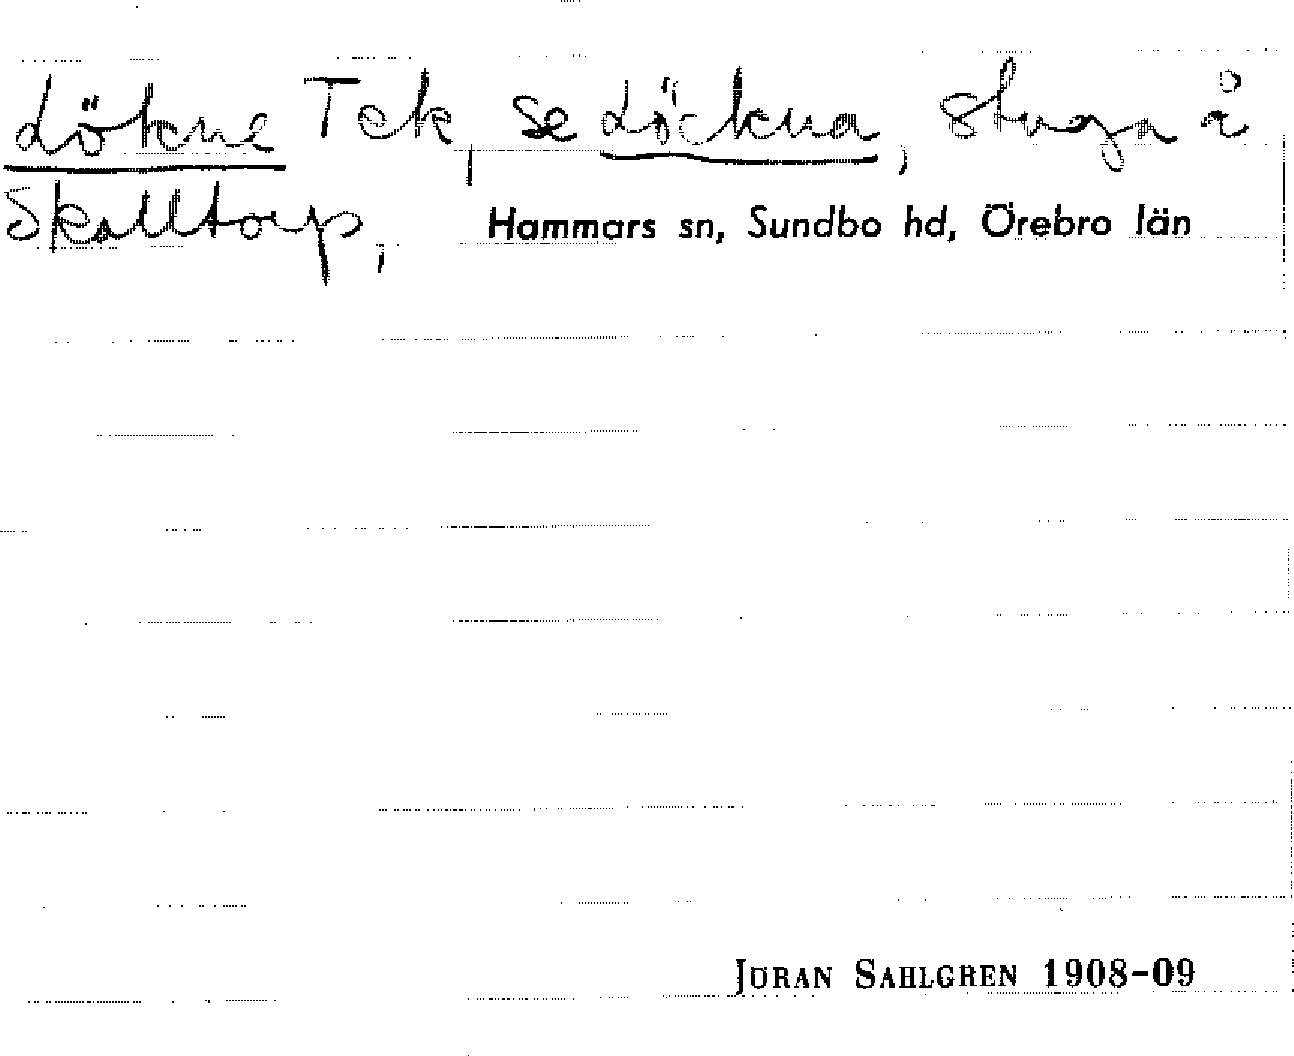 Lökne Tek, se Löckna, stuga å
Skalltorp, Hammars sn, Sundbo hd, Örebro län
JÖRAN SAHLGREN 1908-09